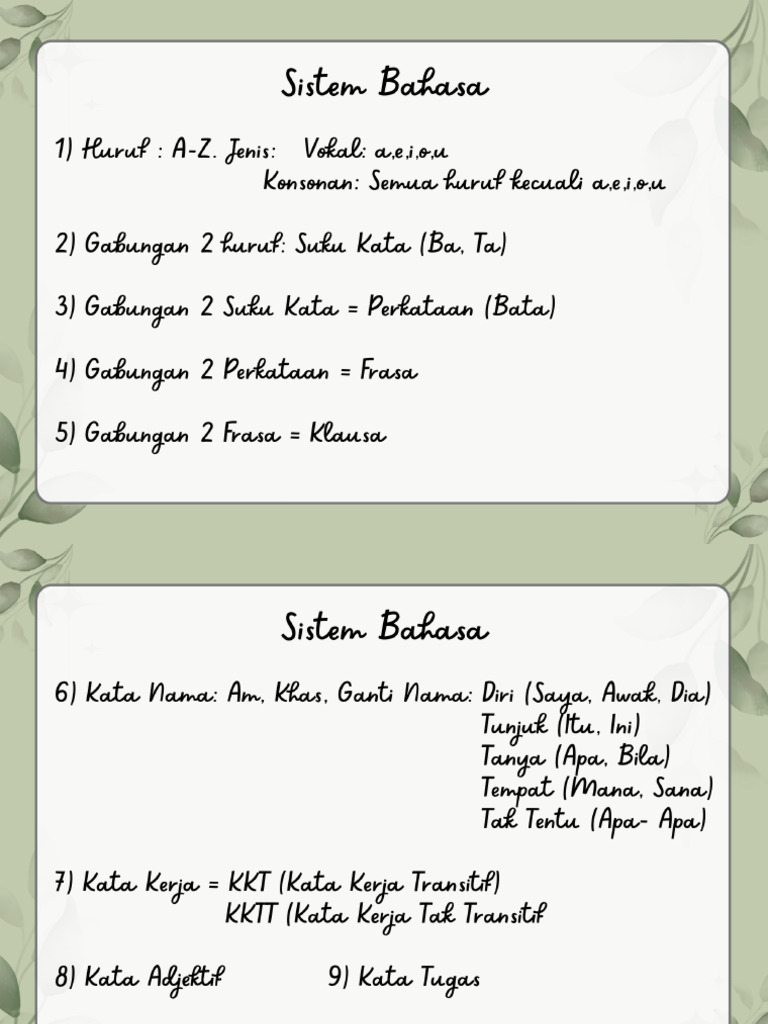 Sistem Bahasa
1) Huruf : A-Z. Jenis: Vokal: a,e,i,o,u
Konsonan: Semua huruf kecuali a,e,i,o,u
2) Gabungan 2 huruf: Suku Kata (Ba, Ta)
3) Gabungan 2 Suku Kata = Perkataan (Bata)
4) Gabungan 2 Perkataan = Frasa
5) Gabungan 2 Frasa = Klausa
Sistem Bahasa
6) Kata Nama: Am, Khas, Ganti Nama: Diri (Saya, Awak, Dia)
Tunjuk (Itu, Ini)
Tanya (Apa, Bila)
Tempat (Mana, Sana)
Tak Tentu (Apa- Apa)
7) Kata Kerja = KKT (Kata Kerja Transitif)
KKTT (Kata Kerja Tak Transitif
8) Kata Adjektif 9) Kata Tugas